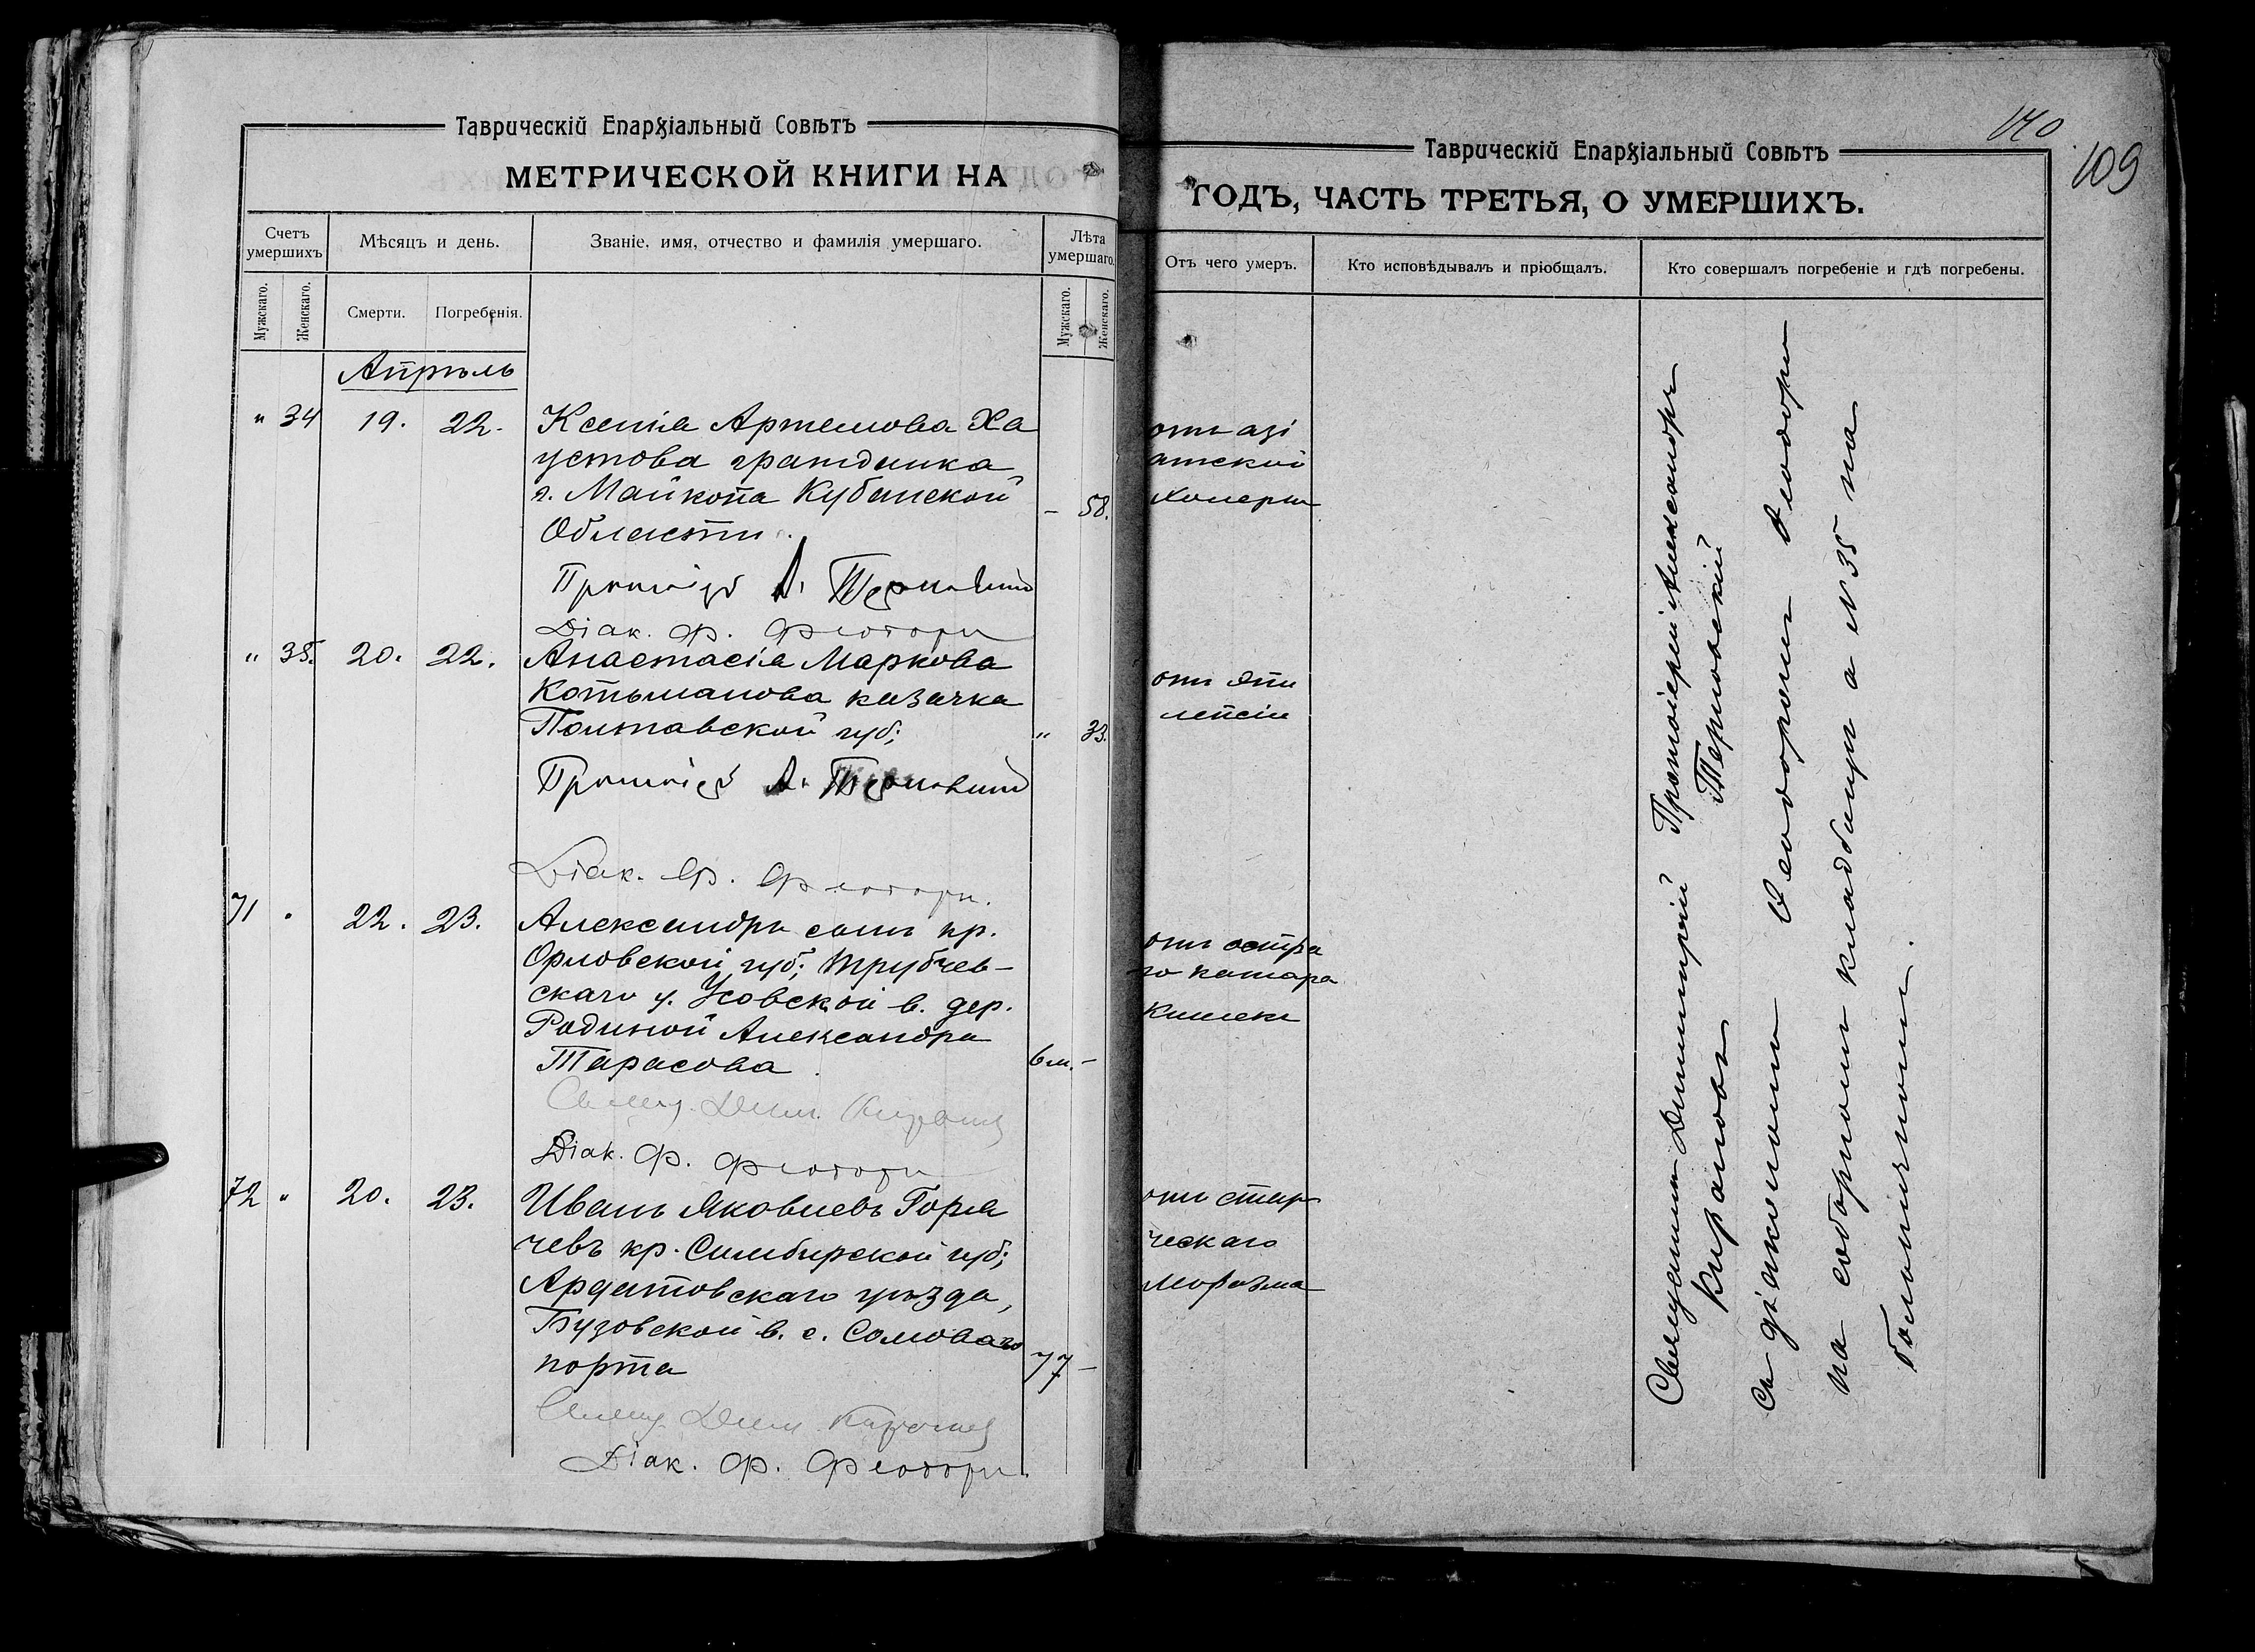 Таврическій Епархіальный Совѣтъ
МЕТРИЧЕСКОЙ КНИГИ НА
Счетъ умершихъ
Мѣсяцъ и день.
Званіе, имя, отчество и фамилія умершаго.
Лѣта умершаго.
Мужскаго.
Женскаго.
Смерти.
Погребенія.
Мужскаго.
Женскаго.
Апрѣль
" 34 19. 22. Ксенія Артемова Ха
устова гражданка
г. Майкопа Кубанской
Области. - 58.
Протоіер. А. Терновскій
Діак. Ф. Флоторъ
" 35. 20. 22. Анастасія Маркова
Котьманова казачка
Полтавской губ; " 33.
Протоіер. А. Терновскій
Діак. Ф. Флоторъ.
71 " 22. 23. Александръ сынъ кр.
Орловской губ; Трубчев-
скаго у. Усовской в. дер.
Радиной Александра
Тарасова 6 м. -
Свящ. Дим. Кирановъ
Діак. Ф. Флоторъ
72 " 20. 23. Иванъ Яковлевъ Горя
чевъ кр. Симбирской губ;
Ардатовскаго уѣзда,
Бузовской в. с. Солова
порта 77 -
Свящ. Дим. Кирановъ
Діак. Ф. Флоторъ.
140
109
Таврическій Епархіальный Совѣтъ
ГОДЪ, ЧАСТЬ ТРЕТЬЯ, О УМЕРШИХЪ.
Отъ чего умеръ.
Кто исповѣдывалъ и пріобщалъ.
Кто совершалъ погребеніе и гдѣ погребены.
отъ азі
атской
холеры
отъ эпи
лепсіи
отъ остра
го катара
кишекъ
отъ стар
ческаго
маразма
Священникъ Димитрій Протоіерей Александръ
Кирановъ Терновскій
съ діакономъ Ѳеодоромъ Флоторъ
на соборномъ кладбищѣ а № 35 на
больничномъ.